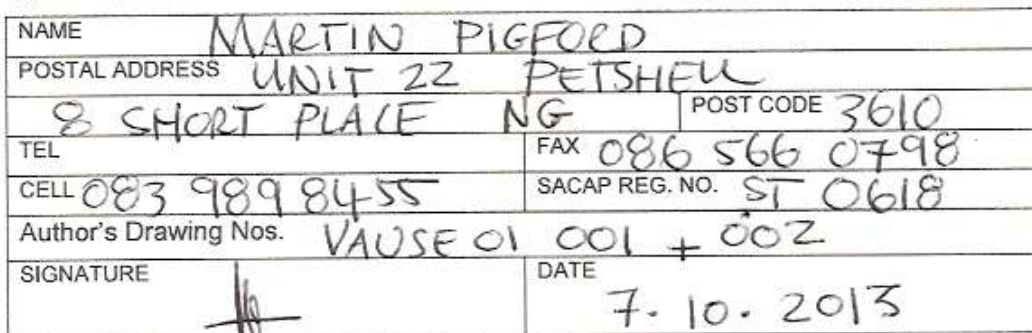 NAME MARTIN PIGFORD
POSTAL ADDRESS UNIT 22 PETSHELL
8 SHORT PLACE NG POST CODE 3610
TEL FAX 086 566 0798
CELL 083 989 8455 SACAP REG. NO. ST 0618
Author's Drawing Nos. VAUSE 01 001 + 002
SIGNATURE DATE 7. 10. 2013